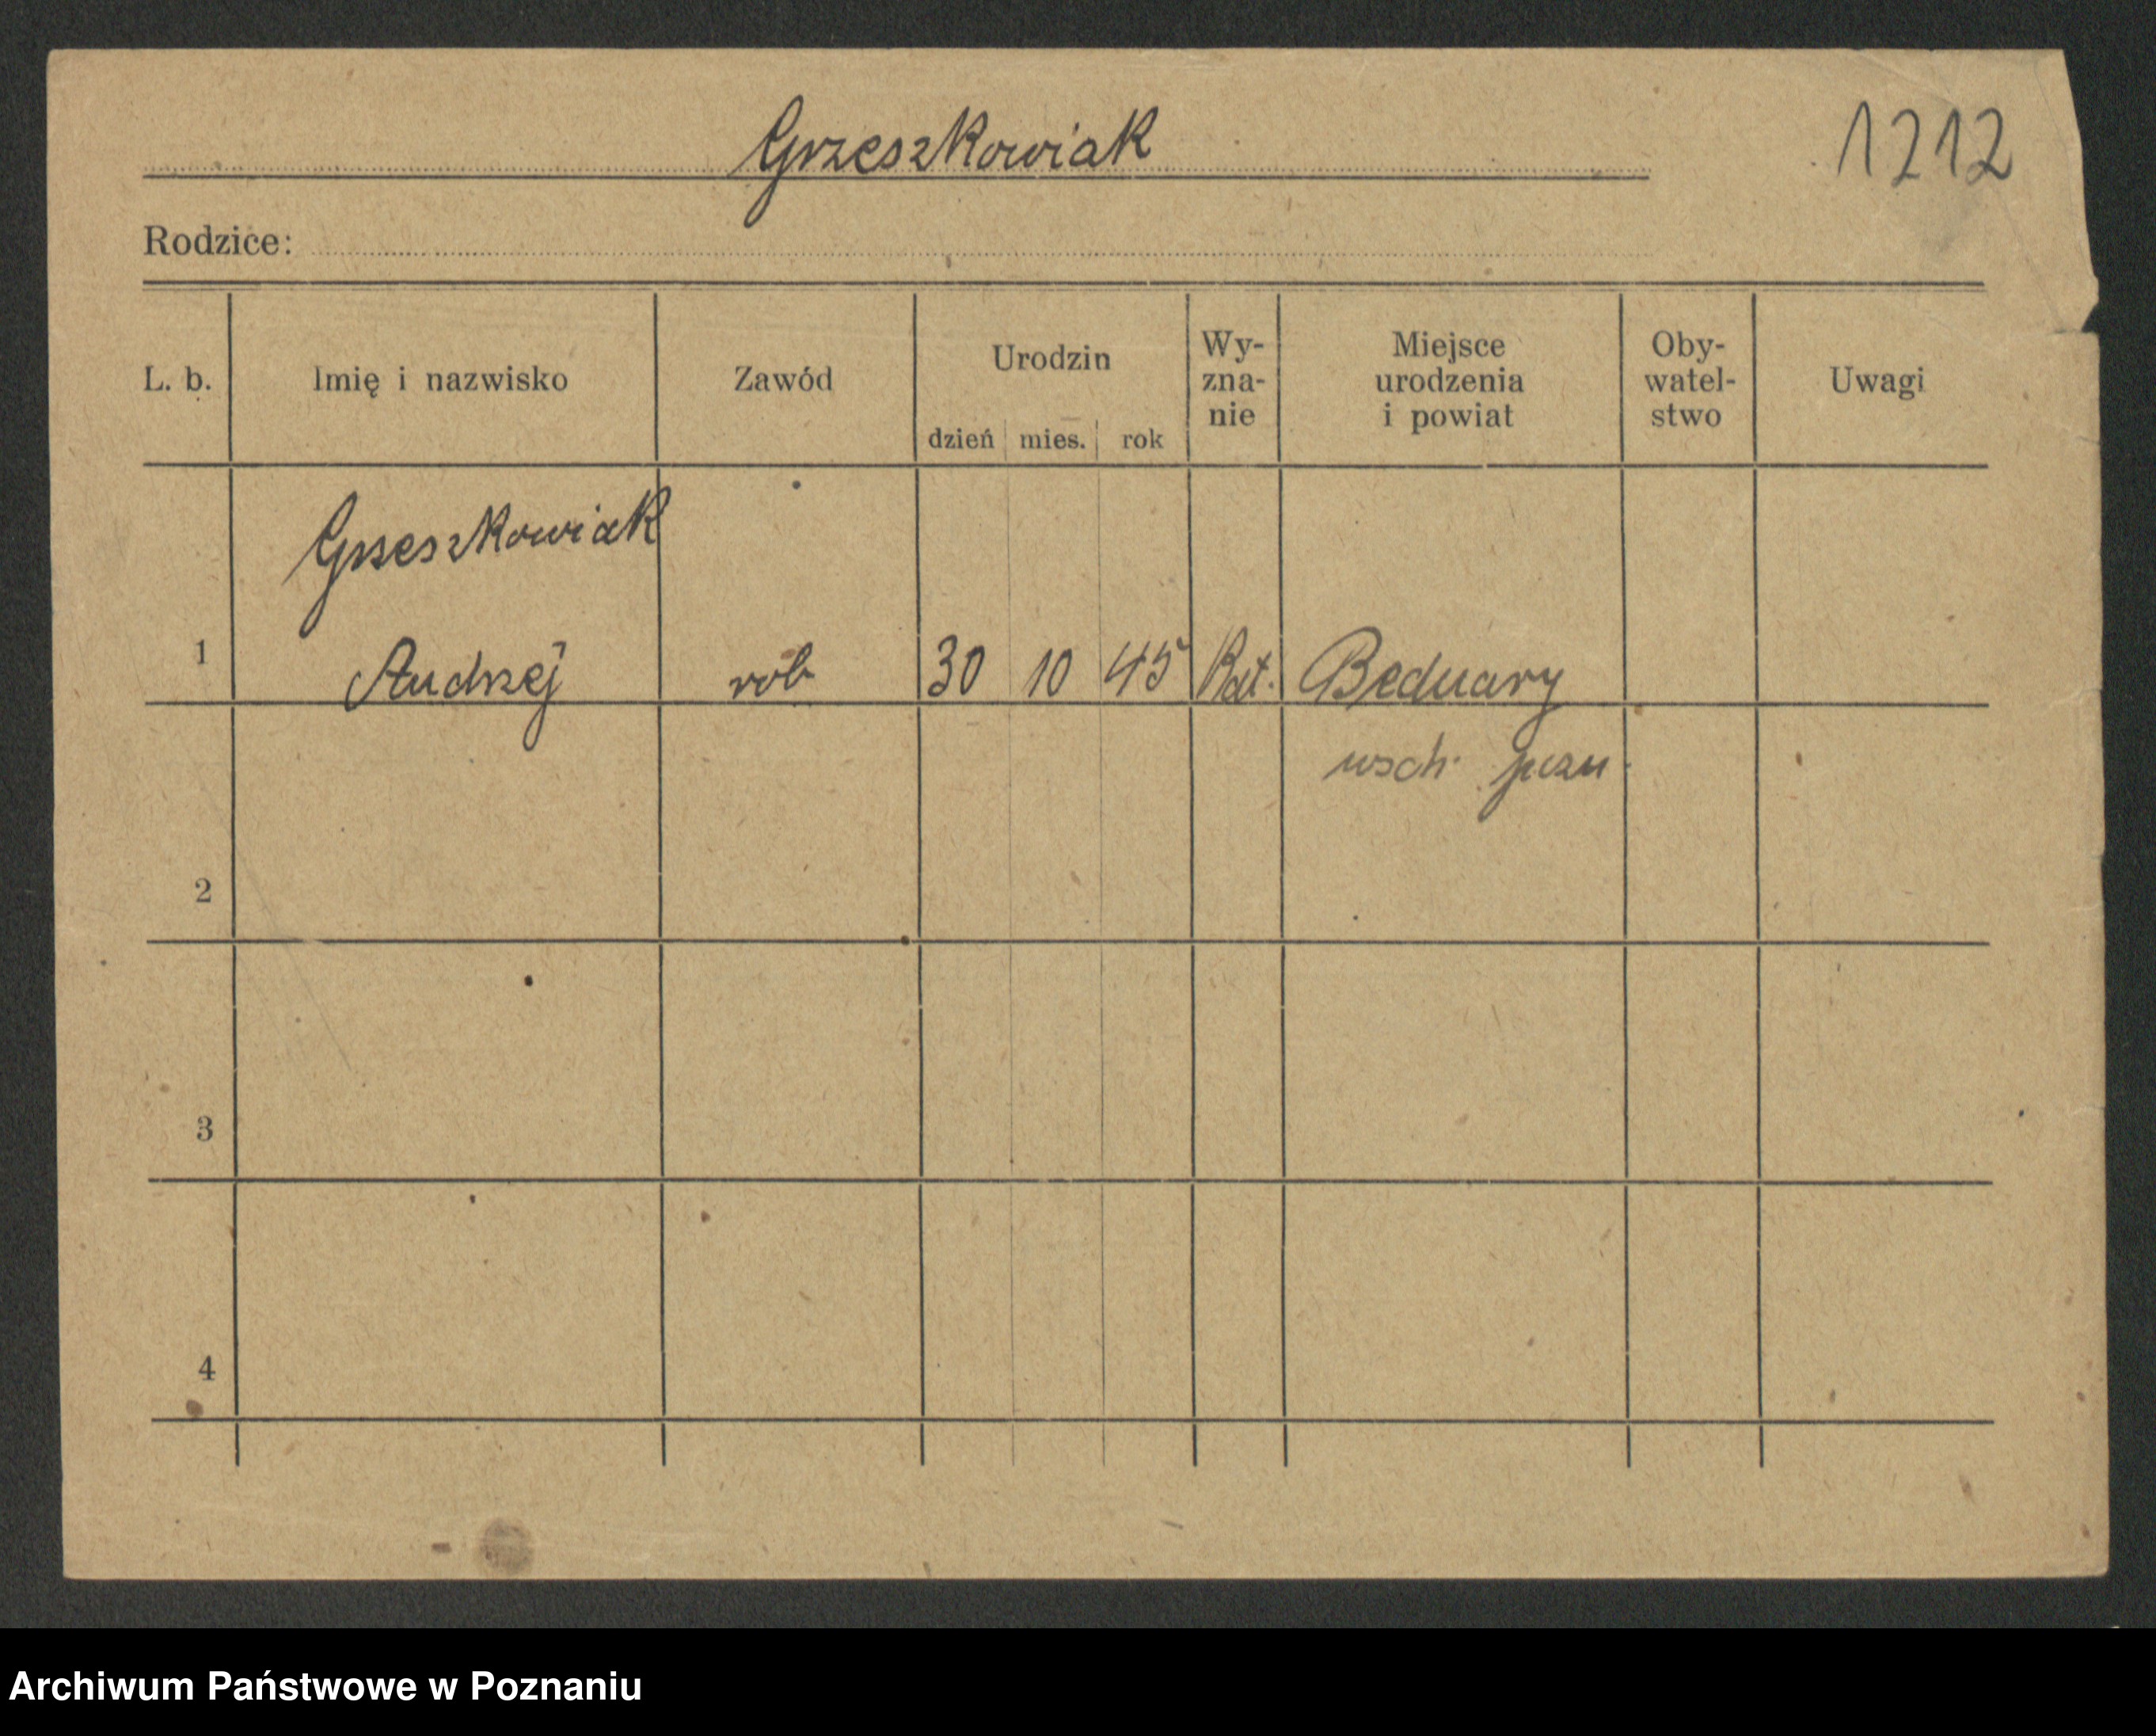 Grzeszkowiak
1212
Rodzice:
L. b.
Imię i nazwisko
Zawód
Urodzin
dzień mies. rok
Wy-
zna-
nie
Miejsce
urodzenia
i powiat
Oby-
watel-
stwo
Uwagi
Grzeszkowiak
1 Andrzej rob 30 10 45 Kat. Bednary
wsch. pozn.
2
3
4
Archiwum Państwowe w Poznaniu